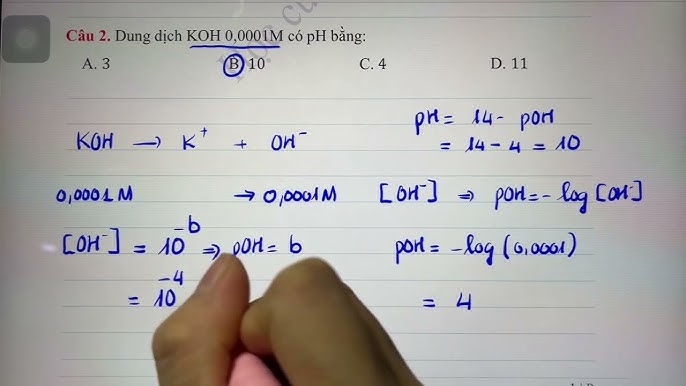 Câu 2. Dung dịch KOH 0,0001M có pH bằng:
A. 3 B. 10 C. 4 D. 11
pH = 14 - pOH
= 14 - 4 = 10
KOH → K⁺ + OH⁻
0,0001M → 0,0001M
[OH⁻] ⇒ pOH = -log[OH⁻]
[OH⁻] = 10⁻ᵇ ⇒ pOH = b
= 10⁻⁴
pOH = -log(0,0001)
= 4